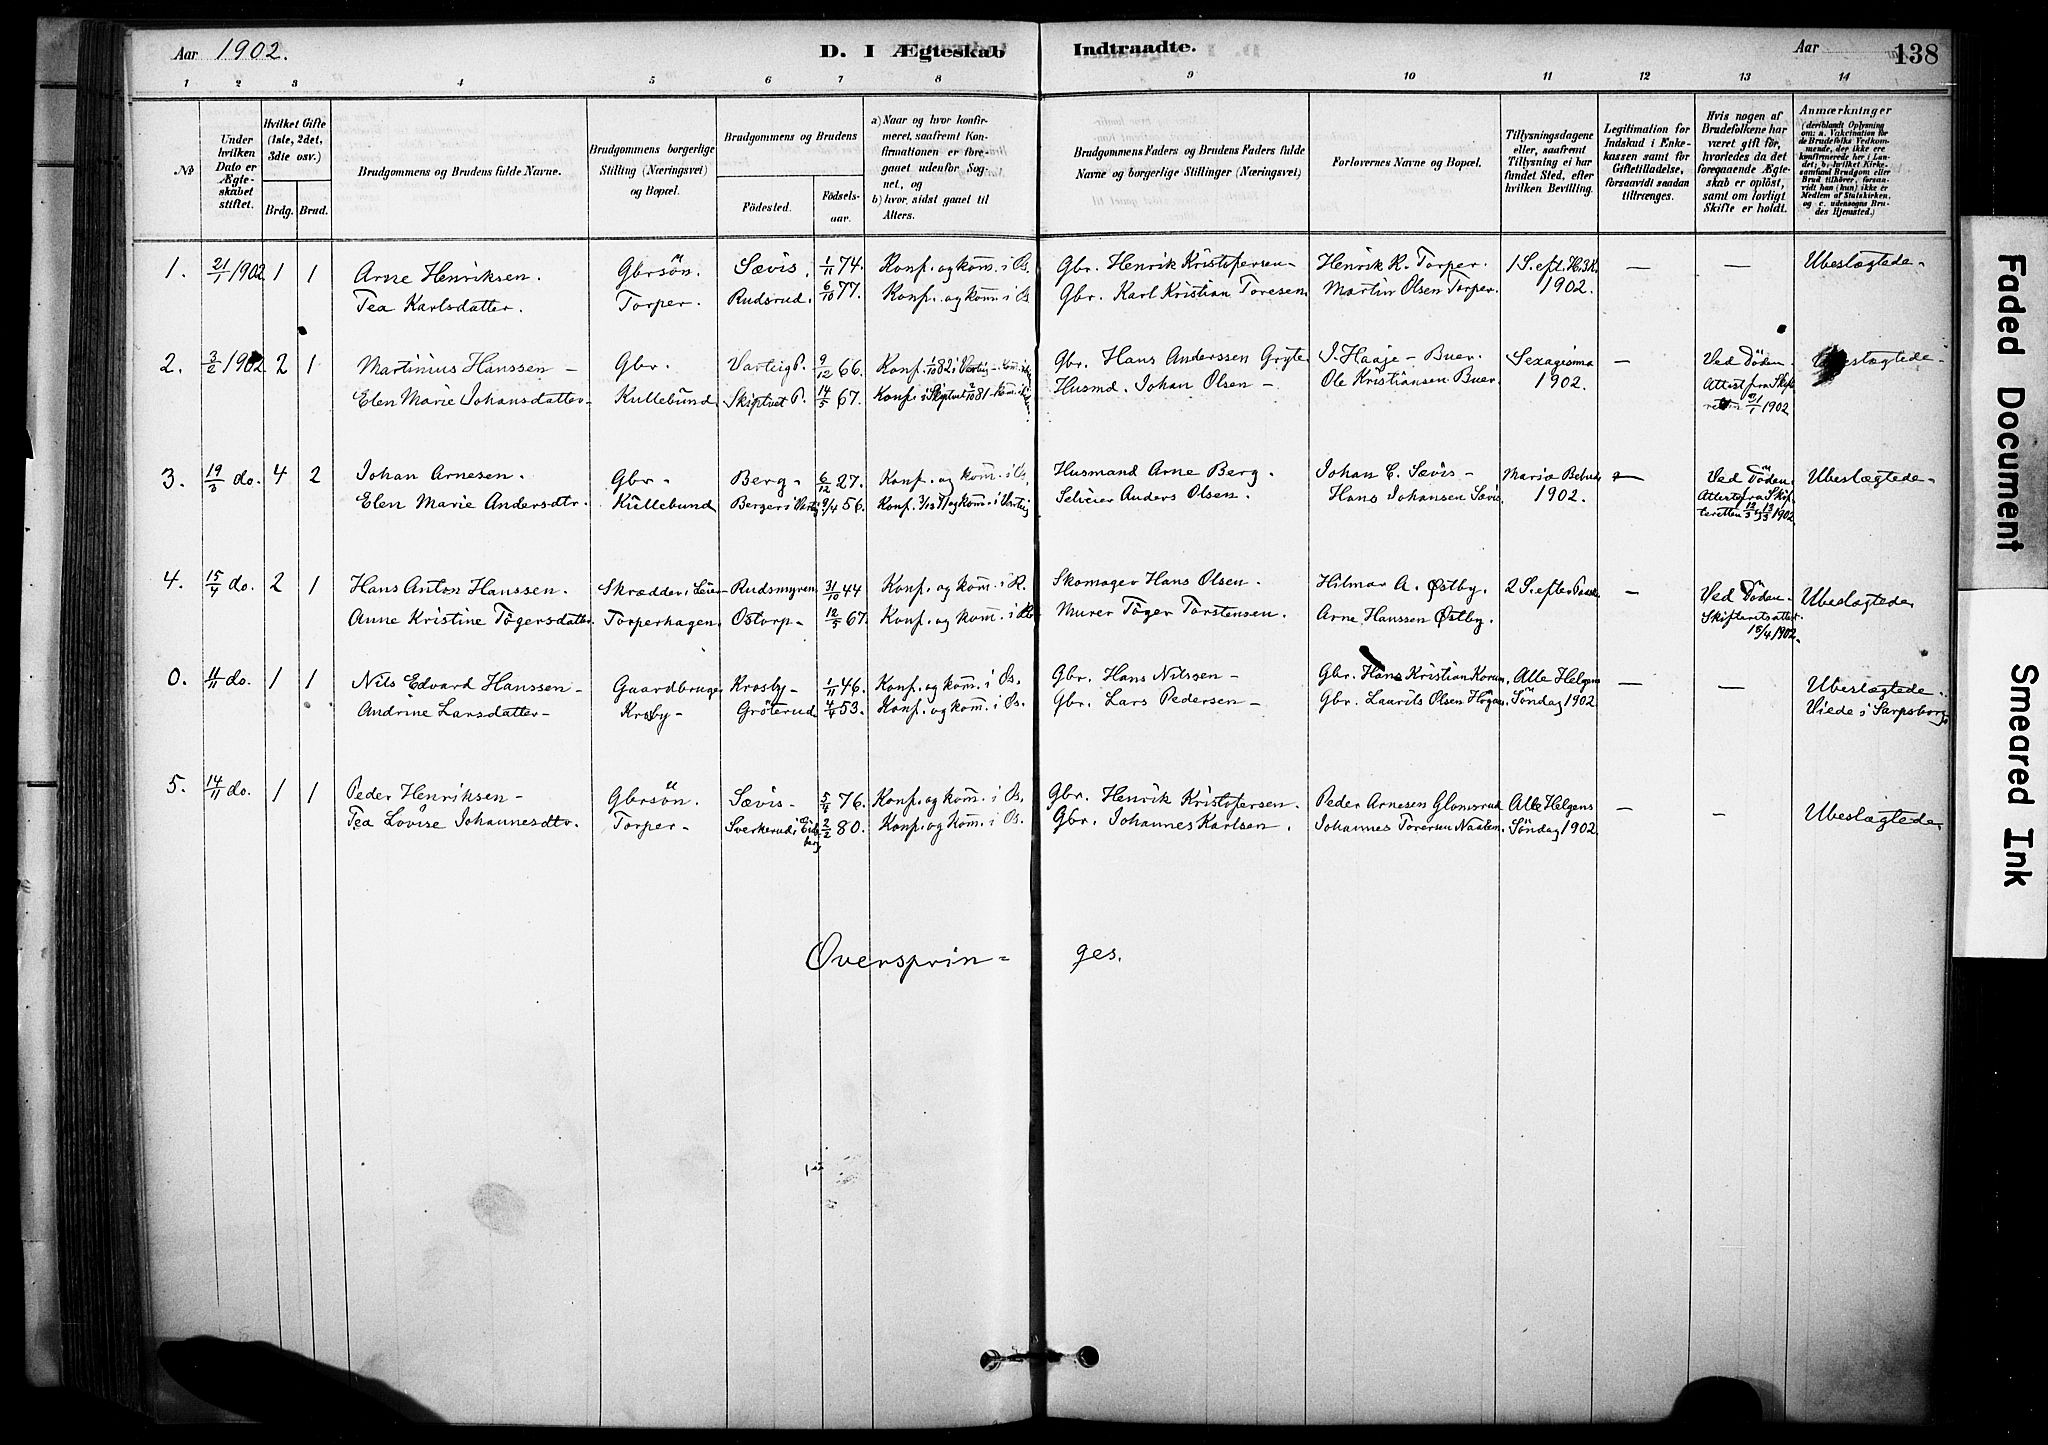 Aar 1902.
D. I Ægteskab Indtraadte.
Aar
138
1 2 3 4 5 6 7 8 9 10 11 12 13 14
No
Under hvilken Dato er Ægteskabet stiftet.
Hvilket Gifte (1ste, 2det, 3die osv.)
Brdg. Brud.
Brudgommens og Brudens fulde Navne.
Brudgommens borgerlige Stilling (Næringsvei) og Bopæl.
Brudgommens og Brudens
Fødested.
Fødselsaar.
a) Naar og hvor konfirmeret, saafremt Konfirmationen er foregaaet udenfor Sognet, og
b) hvor, sidst gaaet til Alters.
Brudgommens Faders og Brudens Faders fulde Navne og borgerlige Stillinger (Næringsvei)
Forlovernes Navne og Bopæl.
Tillysningsdagene eller, saafremt Tillysning ei har fundet Sted, efter hvilken Bevilling.
Legitimation for Indskud i Enkekassen samt for Giftetilladelse, forsaavidt saadan tiltrænges.
Hvis nogen af Brudefolkene har været gift før, hvorledes da det foregaaende Ægteskab er opløst, samt om lovligt Skifte er holdt.
Anmærkninger (deriblandt Oplysning om: a. Vakcination for de Brudefolks Vedkommende, der ikke ere konfirmerede her i Landet; b. hvilket Kirkesamfund Brudgom eller Brud tilhører, forsaavidt han (hun) ikke er Medlem af Statskirken, og c. udensogns Brudes Hjemsted.)
1. 21/1 1902 1 1 Arne Henriksen. Gbrsön. Sævis. 1/11 74. Konf. og kom. i Os. Gbr. Henrik Kristofersen- Henrik K. Torper. 1 S. eft. H.3K. — — Ubeslægtede-
Tea Karlsdatter. Torper. Rudsrud. 6/10 77. Konf. og kom. i Os Gbr. Karl Kristian Toresen Martin Olsen Torper. 1902.
2. 3/2 1902 2 1 Martinius Hanssen- Gbr. Varteig P. 9/12 66. Konf. 1/10 82 i Varteig- Gbr. Hans Anderssen Gryte J. Haaje- Buer. Sexagesima — Ved Döden. Ubeslægtede-
Elen Marie Johansdatter- Kullebund Skiptvet P. 14/5 67. Konf. i Skiptvet 2/10 81- Husmd. Johan Olsen- Ole Kristiansen Buer 1902. Attest fra Skifteretten 31/1 1902
3. 19/3 do. 4 2 Johan Arnesen. Gbr- Berg- 6/12 27. Konf. og kom. i Os. Husmand Arne Berg. Johan C. Sævis- Mariæ Bebud — Ved Döden. Ubeslægtede-
Elen Marie Andersdtr. Kullebund Berger i 9/4 56. Konf. og kom. i Varteig Anders Olsen. Hans Johansen Sævis 1902. Attest fra Skifteretten 12/3 13/3 1902
4. 15/4 do. 2 1 Hans Anton Hanssen. Skrædder, Rudsmyren 31/10 44 Konf. og kom. i R. Skomager Hans Olsen. Hilmar A. Østby. 2 S. efter Paaske — Ved Döden- Ubeslægtede
Anne Kristine Tögersdatter. Torperhagen Ostorp- 12/5 67. Konf. og kom. i Murer Töger Torstensen. Arne Hanssen Østby. Skifteretsattest 15/4 1902.
0. 11/11 do. 1 1 Nils Edvard Hanssen- Gaardbruger Krosby- 1/11 46. Konf. og kom. i Os. Gbr. Hans Nilssen- Gbr. Hans Kristian Alle Helgens — — Ubeslægtede-
Andrine Larsdatter- Krosby- Gröterud 53. Konf. og kom. i Os. Gbr. Lars Pedersen- Gbr. Laurits Olsen Söndag 1902. Viede i Sarpsborg
5. 14/11 do. 1 1 Peder Henriksen- Gbrsön. Sævis- 76. Konf. og kom. i Os. Gbr. Henrik Kristofersen. Peder Arnesen Glomsrud Alle Helgens — - Ubeslægtede
Tea Lovise Johannesdtr. Torper- Sverkerud i Eidsberg 2/2 80. Konf. og kom. i Os. Gbr. Johannes Karlsen. Johannes Toresen Söndag 1902.
Oversprin= ges.
Faded Document
Smeared Ink